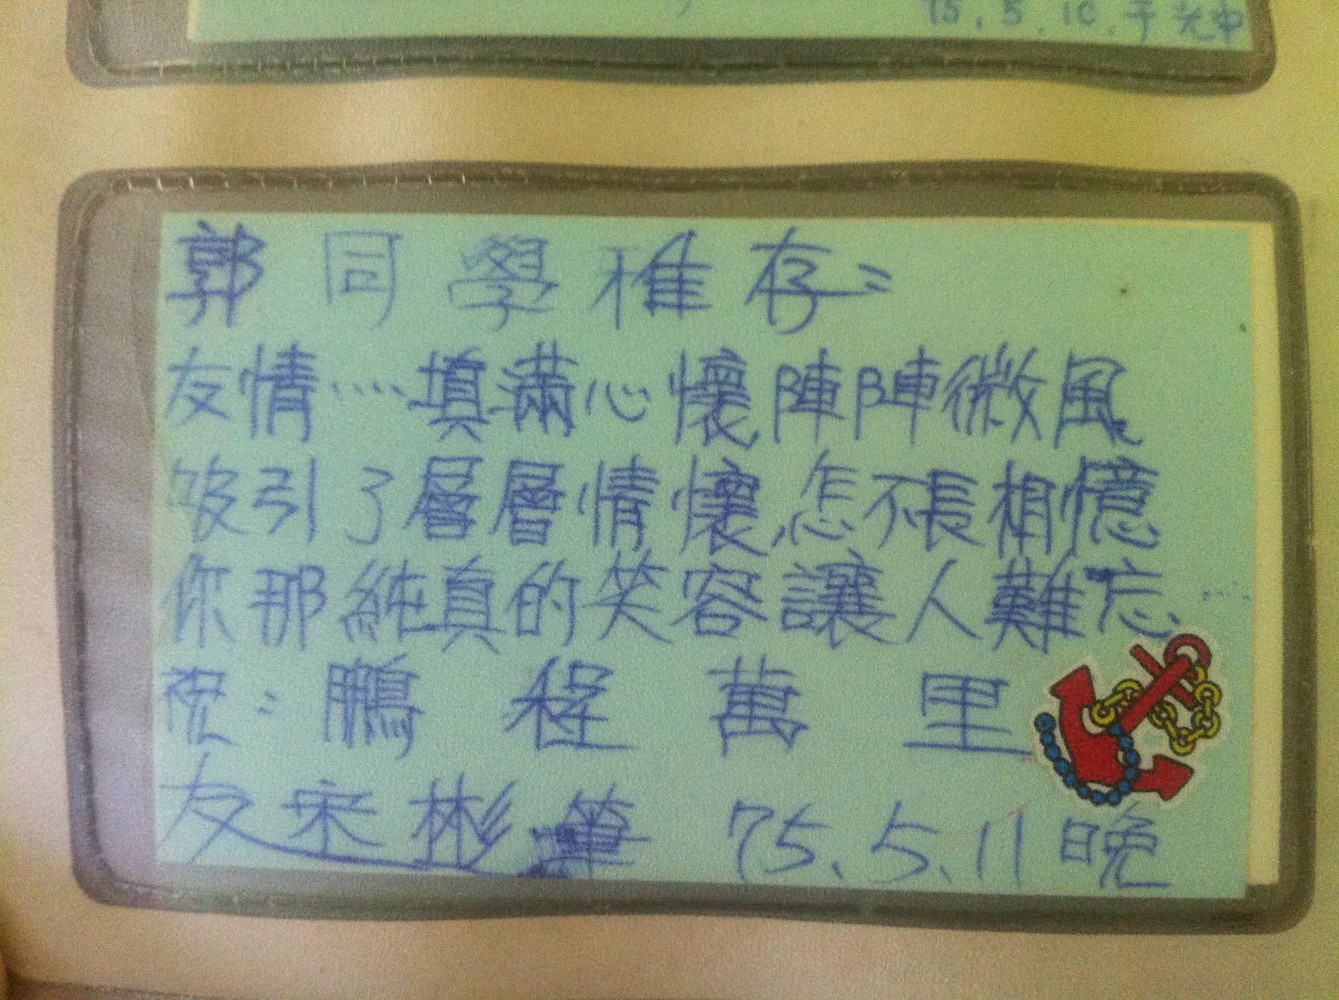 75.5.10.于光中
郭同學雅存:
友情....填滿心懷,陣陣微風
吸引了層層情懷,怎不長相憶
你那純真的笑容讓人難忘....
祝:鵬程萬里
友宋彬筆 75.5.11晚